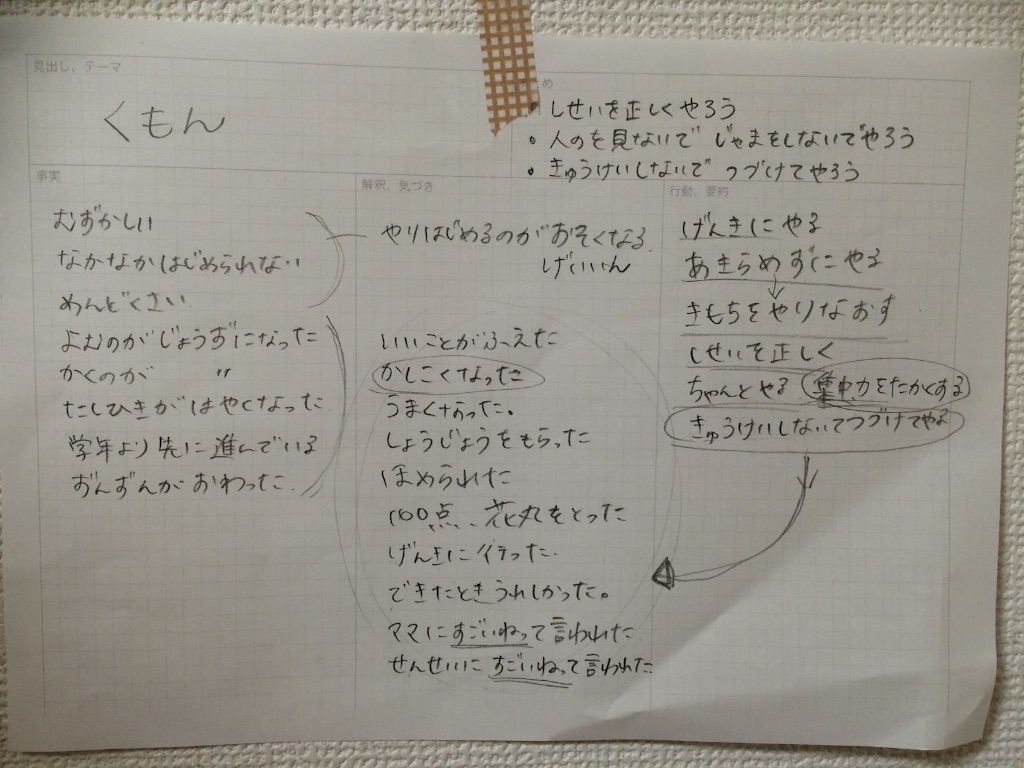 見出し、テーマ
くもん
め
• しせいを正しくやろう
• 人のを見ないで じゃまをしないでやろう
• きゅうけいしないで つづけてやろう
事実
むずかしい
なかなかはじめられない
めんどくさい
よむのがじょうずになった
かくのが 〃
たしひきがはやくなった
学年より先に進んでいる
ずんずんがおわった
解釈、気づき
やりはじめるのがおそくなる
げいいん
いいことがふえた
かしこくなった
うまくなった。
しょうじょうをもらった
ほめられた
100点、花丸をとった
げんきに行った
できたときうれしかった。
ママにすごいねって言われた
せんせいにすごいねって言われた
行動、要約
げんきにやる
あきらめずにやる
きもちをやりなおす
しせいを正しく
ちゃんとやる 集中力をたかくする
きゅうけいしないでつづけてやる